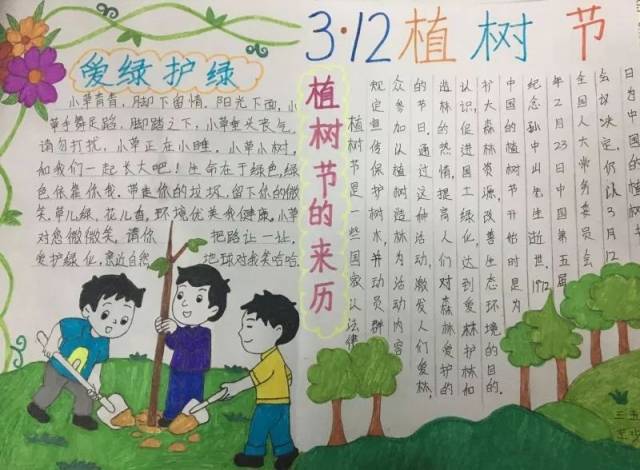 3·12植树节
爱绿护绿
小草青青，脚下留情，阳光下面，小
草手舞足蹈，脚踏之下，小草垂头丧气
请勿打扰，小草正在小睡，小草小树，
和我们一起长大吧！生命在于绿色，绿
色依靠你我。带走你的垃圾，留下你的微
笑，草儿绿，花儿香，环境优美我健康，小草
对您微微笑，请你把路让一让，
爱护绿化，亲近自然，地球对我笑哈哈
植树节的来历
植树节是一些国家以法律
规定宣传保护树木，并动员群
众参加植树造林为活动内容
的节日。通过这种活动，激发人们爱林、
造林的热情，提高人们对森林爱护的
认识，促进国土绿化，达到爱林护林和
扩大森林资源、改善生态环境的目的。
中国的植树节开始时是为
纪念孙中山先生逝世。
年2月23日中国第五届
全国人大常务委员会
会议决定，仍以3月12
日为中国的